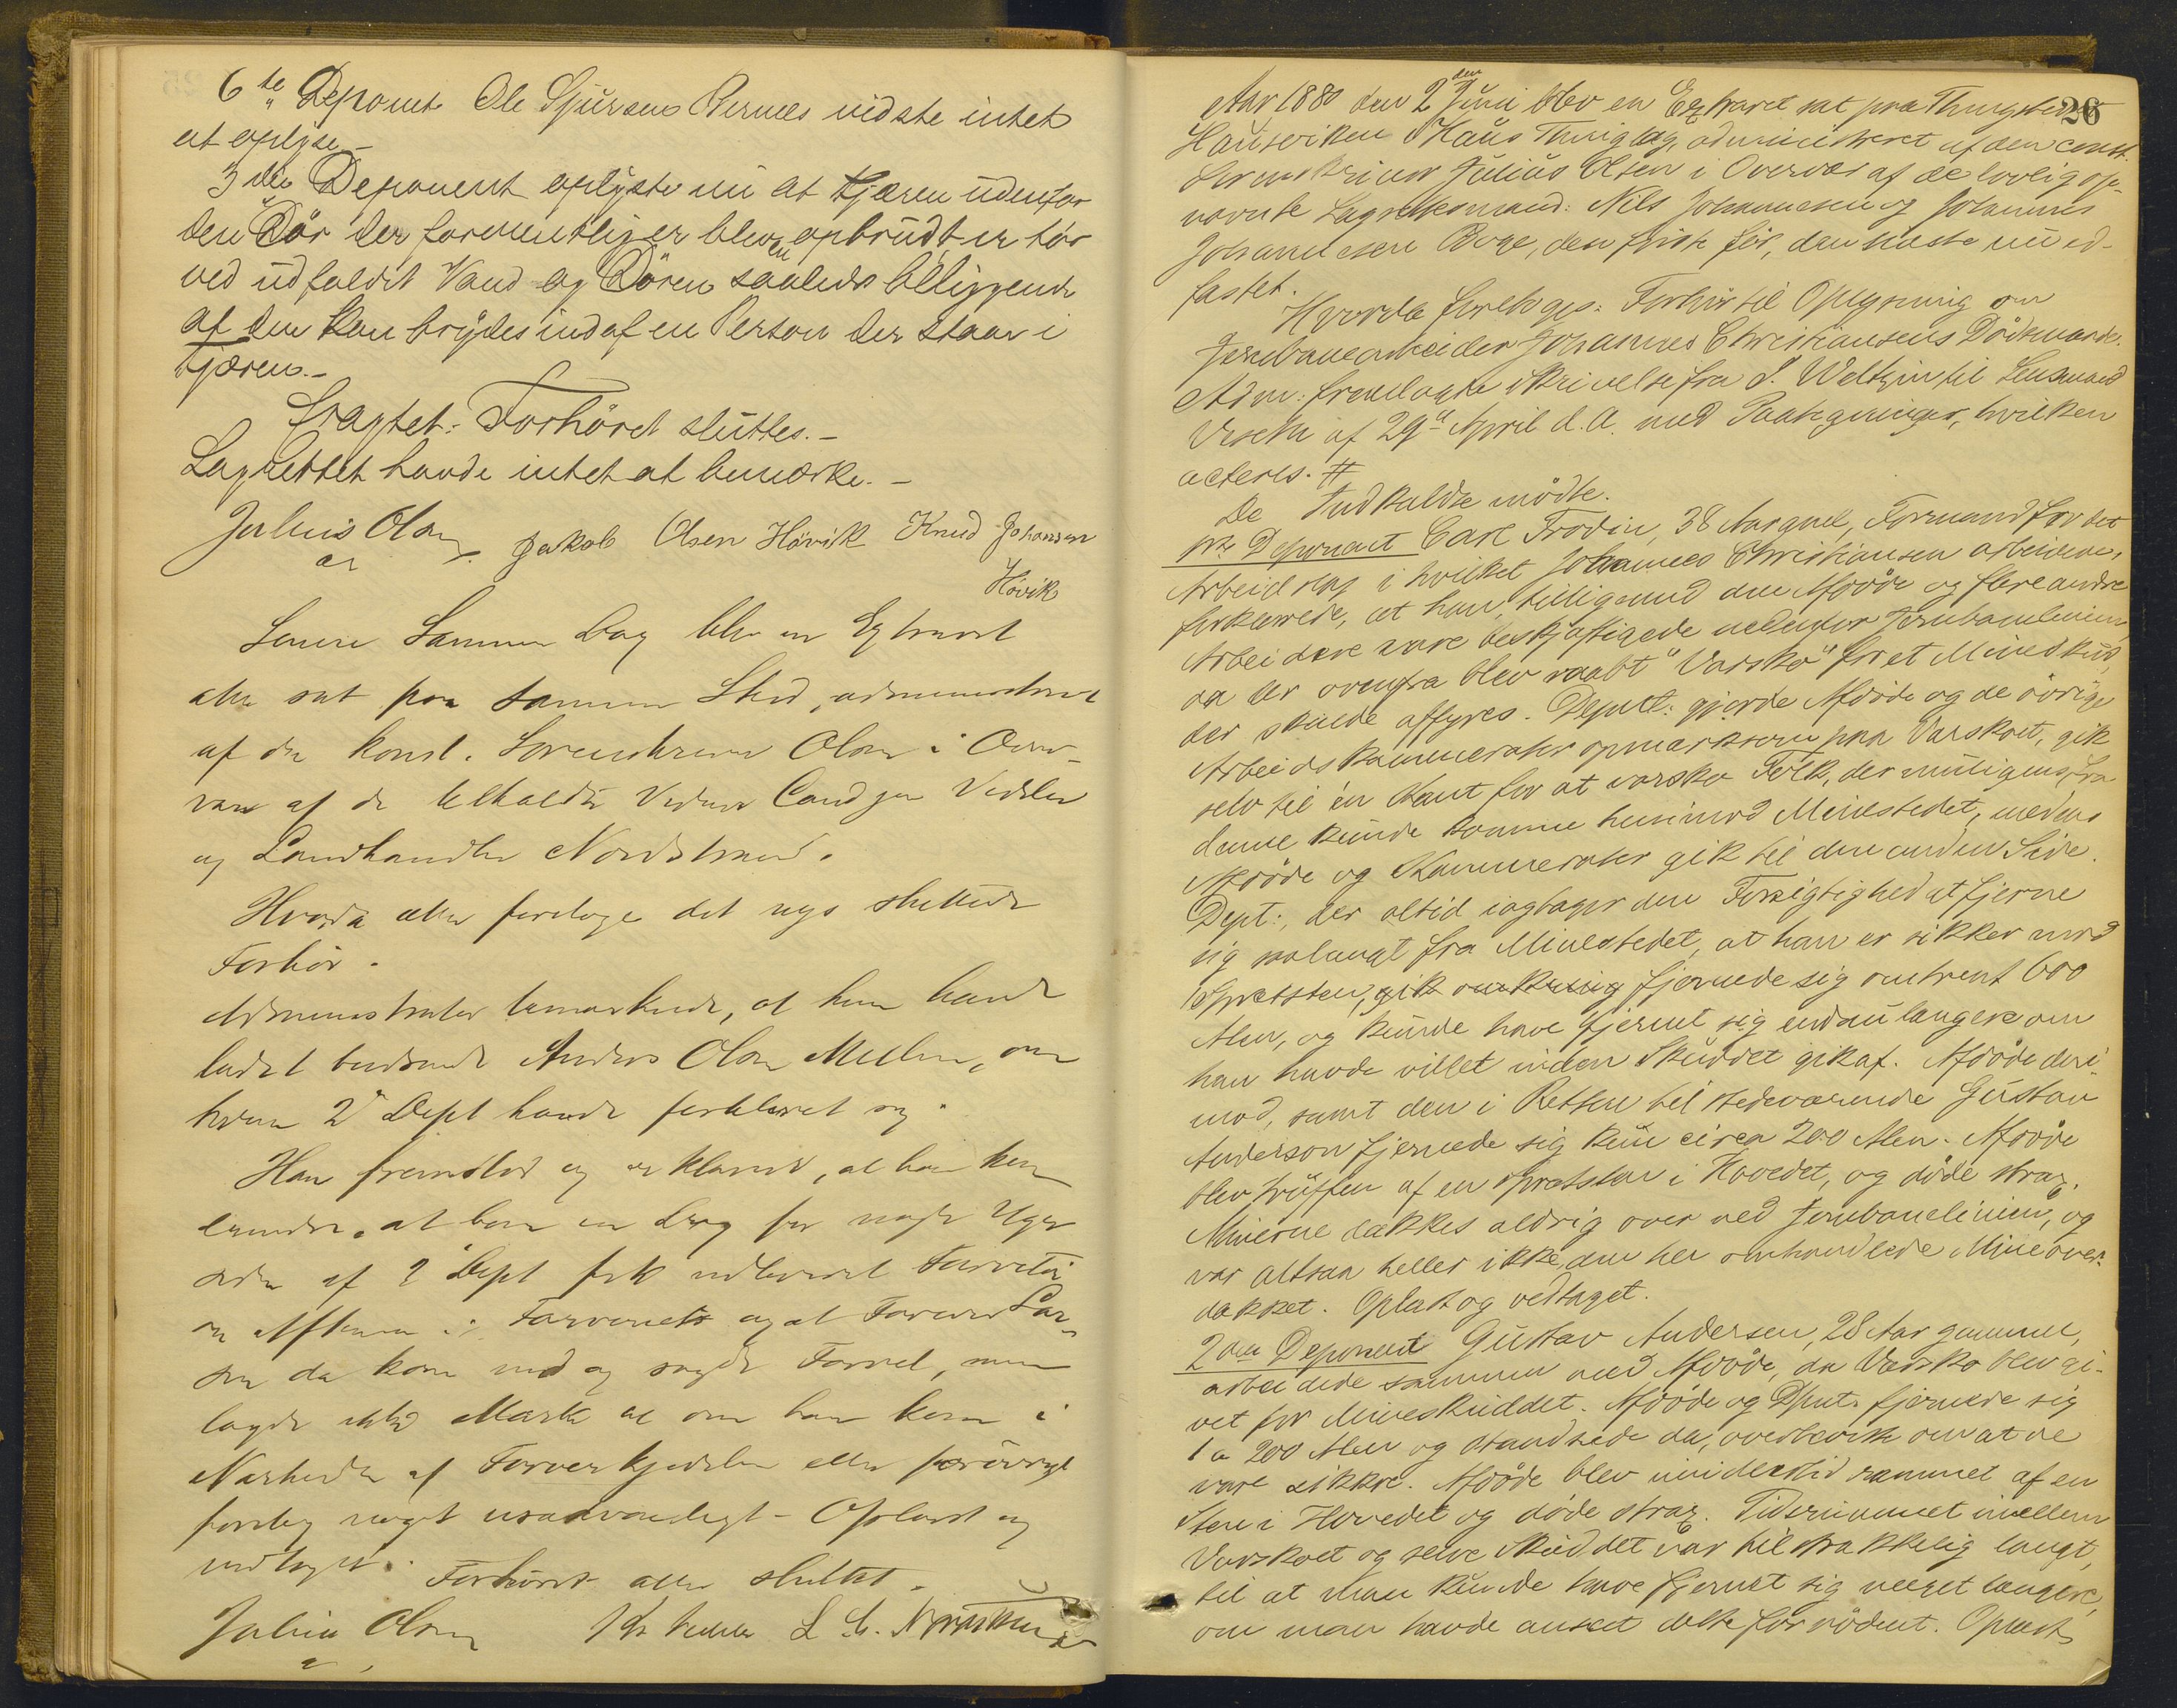 6te Deponent Ole Sjursen Bernes vidste intet
at oplyse.-
3die Deponent oplyste nu at Fjæren udenfor
den Dør der formentlig er bleven opbrudt er tør
ved udfaldet Vand og Døren saaledes beliggende
at den kan brydes ind af en Person der staar i
Fjæren.-
Eragtet: Forhöret sluttes.-
Lagrettet havde intet at bemærke.-
Julius Olsen Jakob Olsen Hövik Knud Johansen
Hövik
Senere Samme Dag blev en Extraret
atter sat paa samme Sted, administreret
af den konst. Sorenskriver Olsen i Over-
vær af de tilkaldte Vidner Cand jur Vedeler
og Landhandler Nordstrand.
Hvorda atter foretoges det nys sluttede
Forhör.
Administrator bemærkede, at han havde
ladet budsende Anders Olsen Mellem, om
hvem 2den Dept havde forklaret sig.
Han fremstod og erklærede, at han kun
erindrer, at han en Dag for nogle Uger
siden af 2 Dept fik udleveret
en Aften i Farveriet og at Farver Lar-
sen da kom ned og sagde Farvel, men
lagde ikke Mærke til om han kom i
Nærheden af Farverkjedelen eller forövrigt
foretog noget usædvanligt - Oplæst og
vedtaget. Forhöret atter sluttet.
Julius Olsen
Aar 1880 den 2den Juni blev en Extraret sat paa Thingstedet 26
Hausviken i Haus Thinglag, administreret af den const.
Sorenskriver Julius Olsen i Overvær af de lovlig op-
nævnte Lagrettesmænd: Nils Johannesen og Johannes
Johannesen Boge, den første før, den næste nu ed-
fæstet.
Hvorda foretoges: Forhør til Oplysning om
Jernbanearbeider Johannes Christiansens Dødsmaade.
Adm: fremlagde Skrivelse fra S. Weltzin til Lensmand
af 29de April d.A. med Paategninger, hvilken
acteres. #
De Indkaldte mødte.
1ste Deponent Carl Frodin, 38 Aar gml, Formand for det
Arbeidslag i hvilket Johannes Christiansen arbeidede,
forklarede, at han, tilligemed den Afdöde og flere andre
Arbeidere vare beskjæftigede nedenfor Jernbanelinien,
da der ovenfra blev raabt "Varsko" for et Mineskud,
der skulde affyres. Deptt: gjorde Afdöde og de övrige
Arbeidskammerater opmærksom paa Varskoet, gik
selv til en Kant for at varsko Folk, der muligens fra
denne kunde komme henimod Minestedet, medens
Afdöde og Kammerater gik til den anden Side.
Dept:, der altid iagtager den Forsigtighed at fjerne
sig saalangt fra Minestedet, at han er sikker mod
Spretsten, gik omkring fjernede sig omtrent 600
Alen, og kunde have fjernet sig endnu længere om
han havde villet inden Skuddet gik af. Afdöde deri-
mod, samt den i Retten tilstedeværende Gustav
Anderson fjernede sig kun circa 200 Alen. Afdöde
blev truffen af en Spretsten i Hovedet, og døde strax.
Minerne dækkes aldrig over ved Jernbanelinien, og
var altsaa heller ikke den her omhandlede Mine over-
dækket. Oplæst og vedtaget.
2den Deponent Gustav Andersen, 28 Aar gammel,
arbeidede sammen med Afdöde, da Varsko blev gi-
vet for Mineskuddet. Afdöde og Dpnt. fjernede sig
1 a 200 Alen og standsede da, overbeviste om at de
vare sikkre. Afdöde blev imidlertid rammet af en
Sten i Hovedet og døde strax. Tidsrummet imellem
Varskoet og selve Skuddet var tilstrækkelig langt,
til at man kunde have fjernet sig meget længere,
om man havde anseet dette fornödent. Oplæst